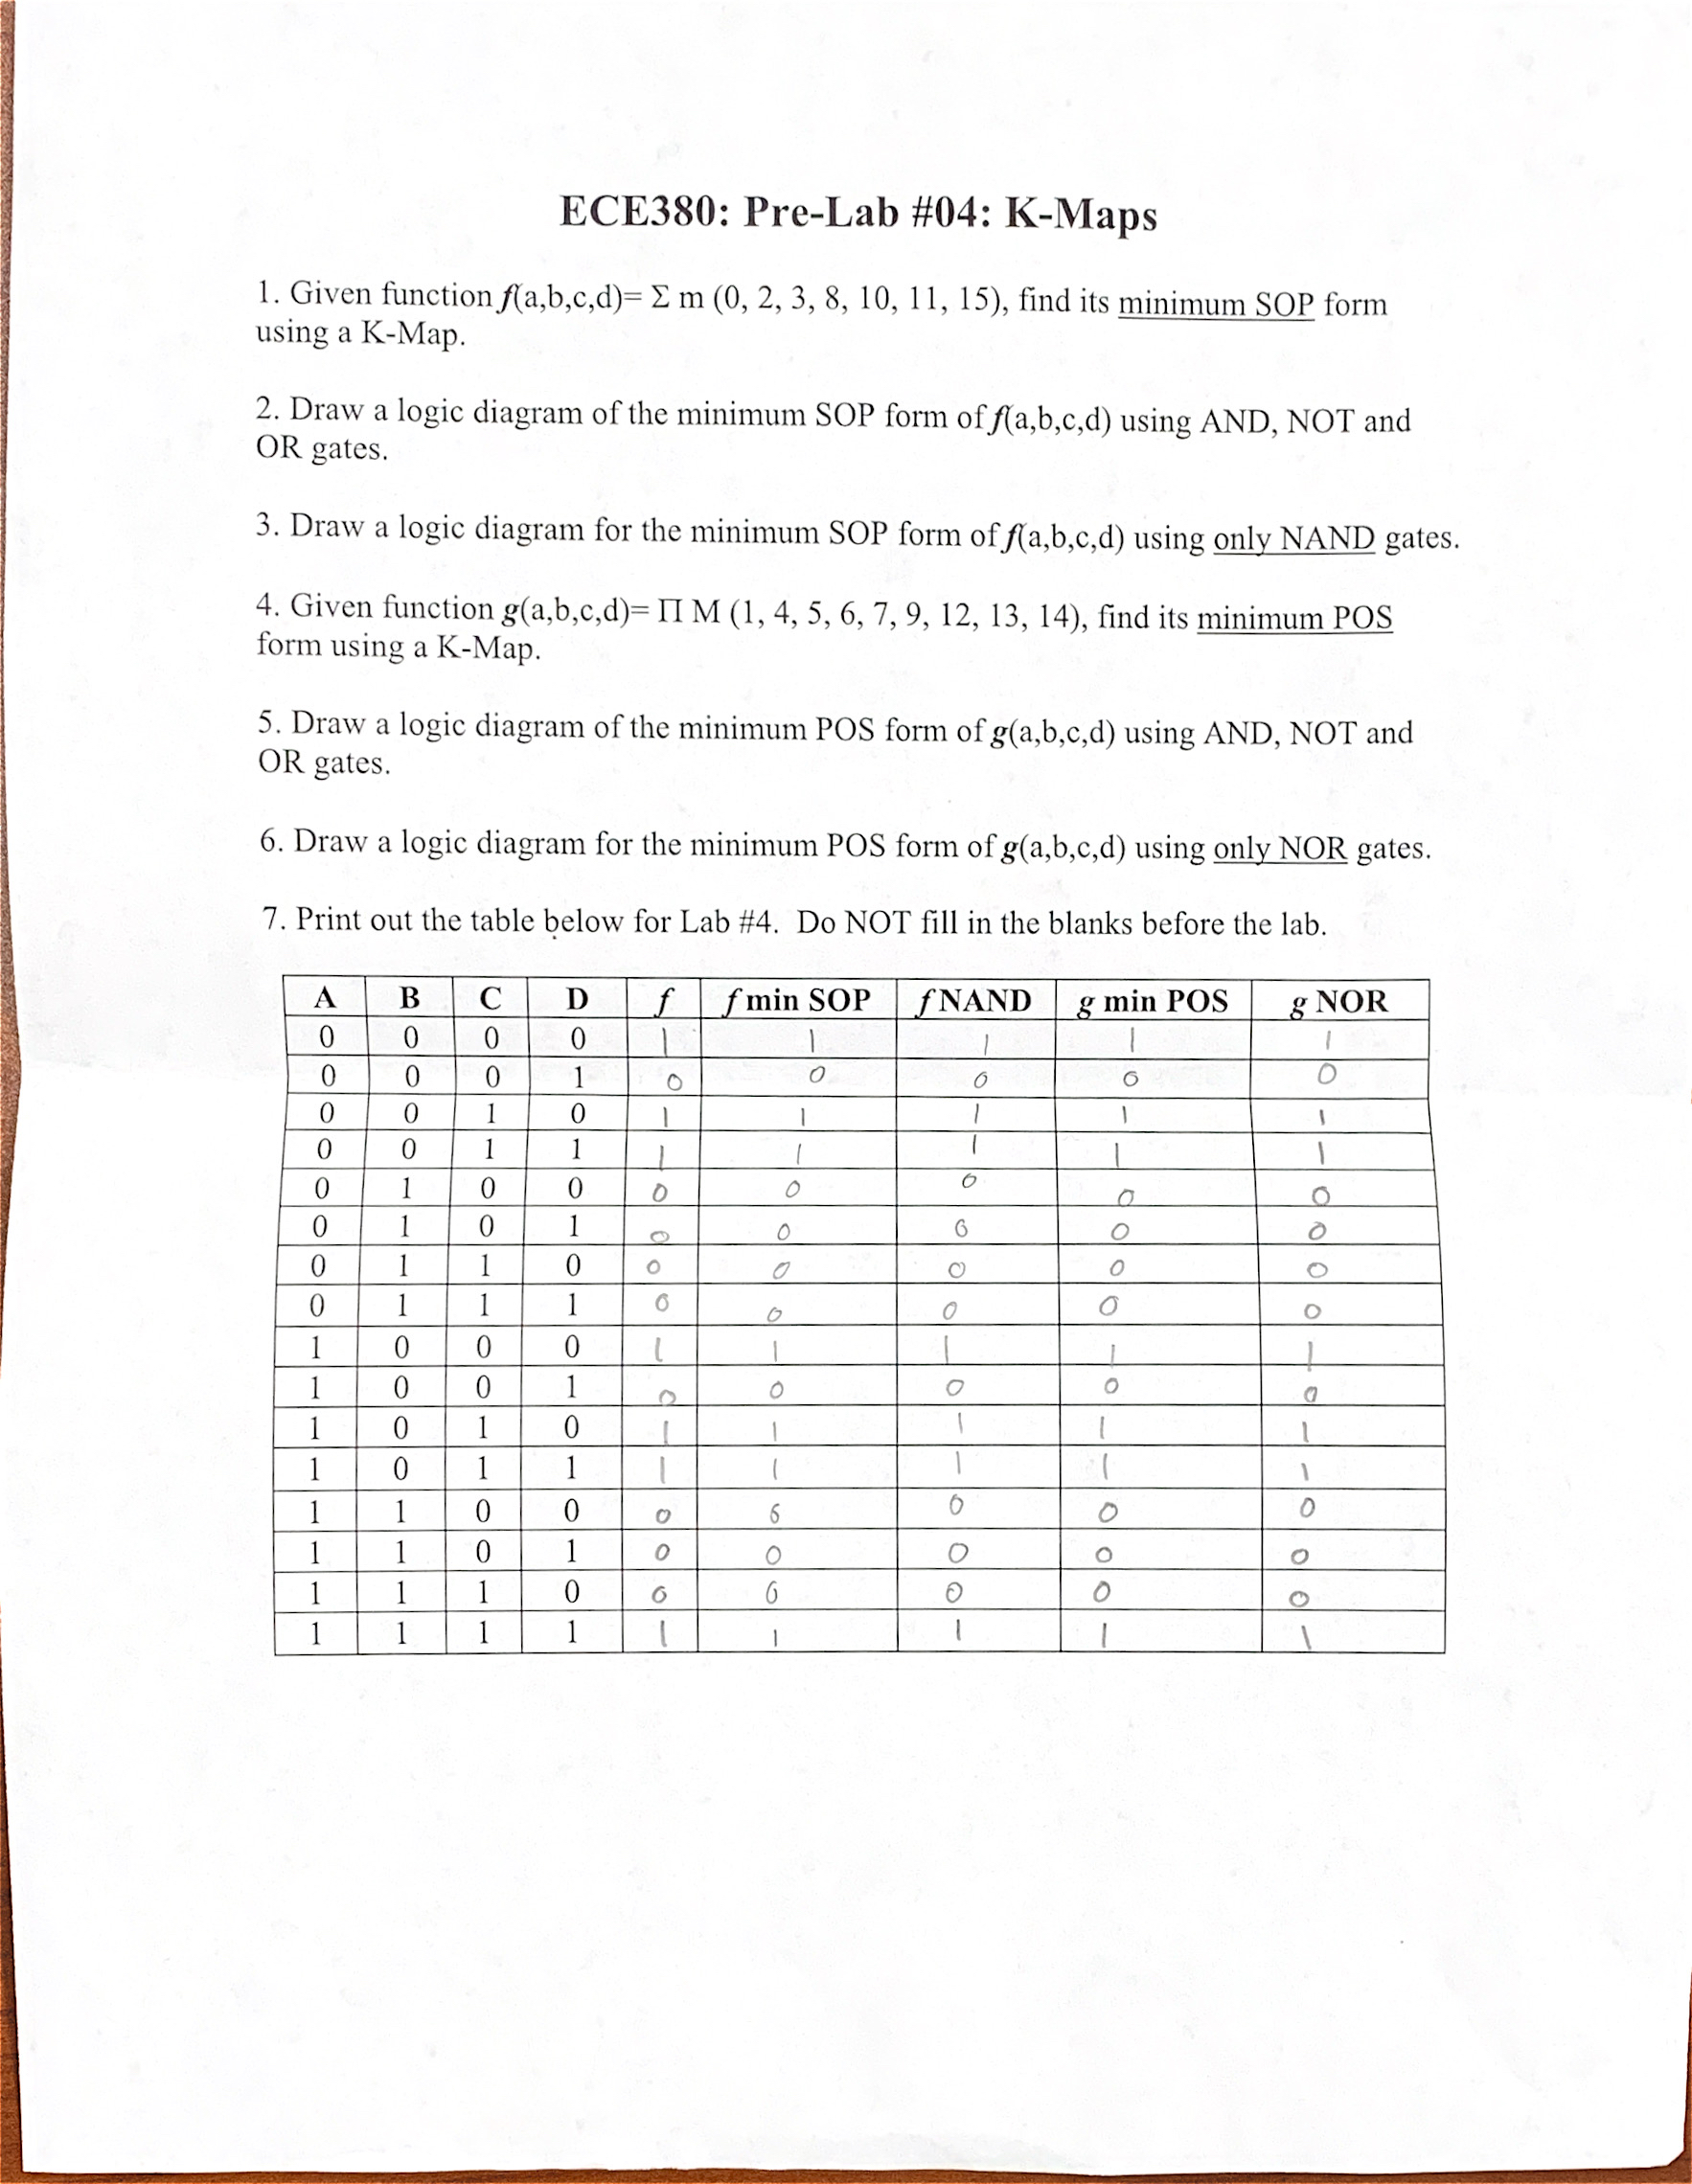 ECE380: Pre-Lab #04: K-Maps
1. Given function f(a,b,c,d)= Σ m (0, 2, 3, 8, 10, 11, 15), find its minimum SOP form
using a K-Map.
2. Draw a logic diagram of the minimum SOP form of f(a,b,c,d) using AND, NOT and
OR gates.
3. Draw a logic diagram for the minimum SOP form of f(a,b,c,d) using only NAND gates.
4. Given function g(a,b,c,d)= Π M (1, 4, 5, 6, 7, 9, 12, 13, 14), find its minimum POS
form using a K-Map.
5. Draw a logic diagram of the minimum POS form of g(a,b,c,d) using AND, NOT and
OR gates.
6. Draw a logic diagram for the minimum POS form of g(a,b,c,d) using only NOR gates.
7. Print out the table below for Lab #4. Do NOT fill in the blanks before the lab.
A B C D f f min SOP f NAND g min POS g NOR
0 0 0 0 1 1 1 1 1
0 0 0 1 0 0 0 0 0
0 0 1 0 1 1 1 1 1
0 0 1 1 1 1 1 1 1
0 1 0 0 0 0 0 0 0
0 1 0 1 0 0 0 0 0
0 1 1 0 0 0 0 0 0
0 1 1 1 0 0 0 0 0
1 0 0 0 1 1 1 1 1
1 0 0 1 0 0 0 0 0
1 0 1 0 1 1 1 1 1
1 0 1 1 1 1 1 1 1
1 1 0 0 0 0 0 0 0
1 1 0 1 0 0 0 0 0
1 1 1 0 0 0 0 0 0
1 1 1 1 1 1 1 1 1